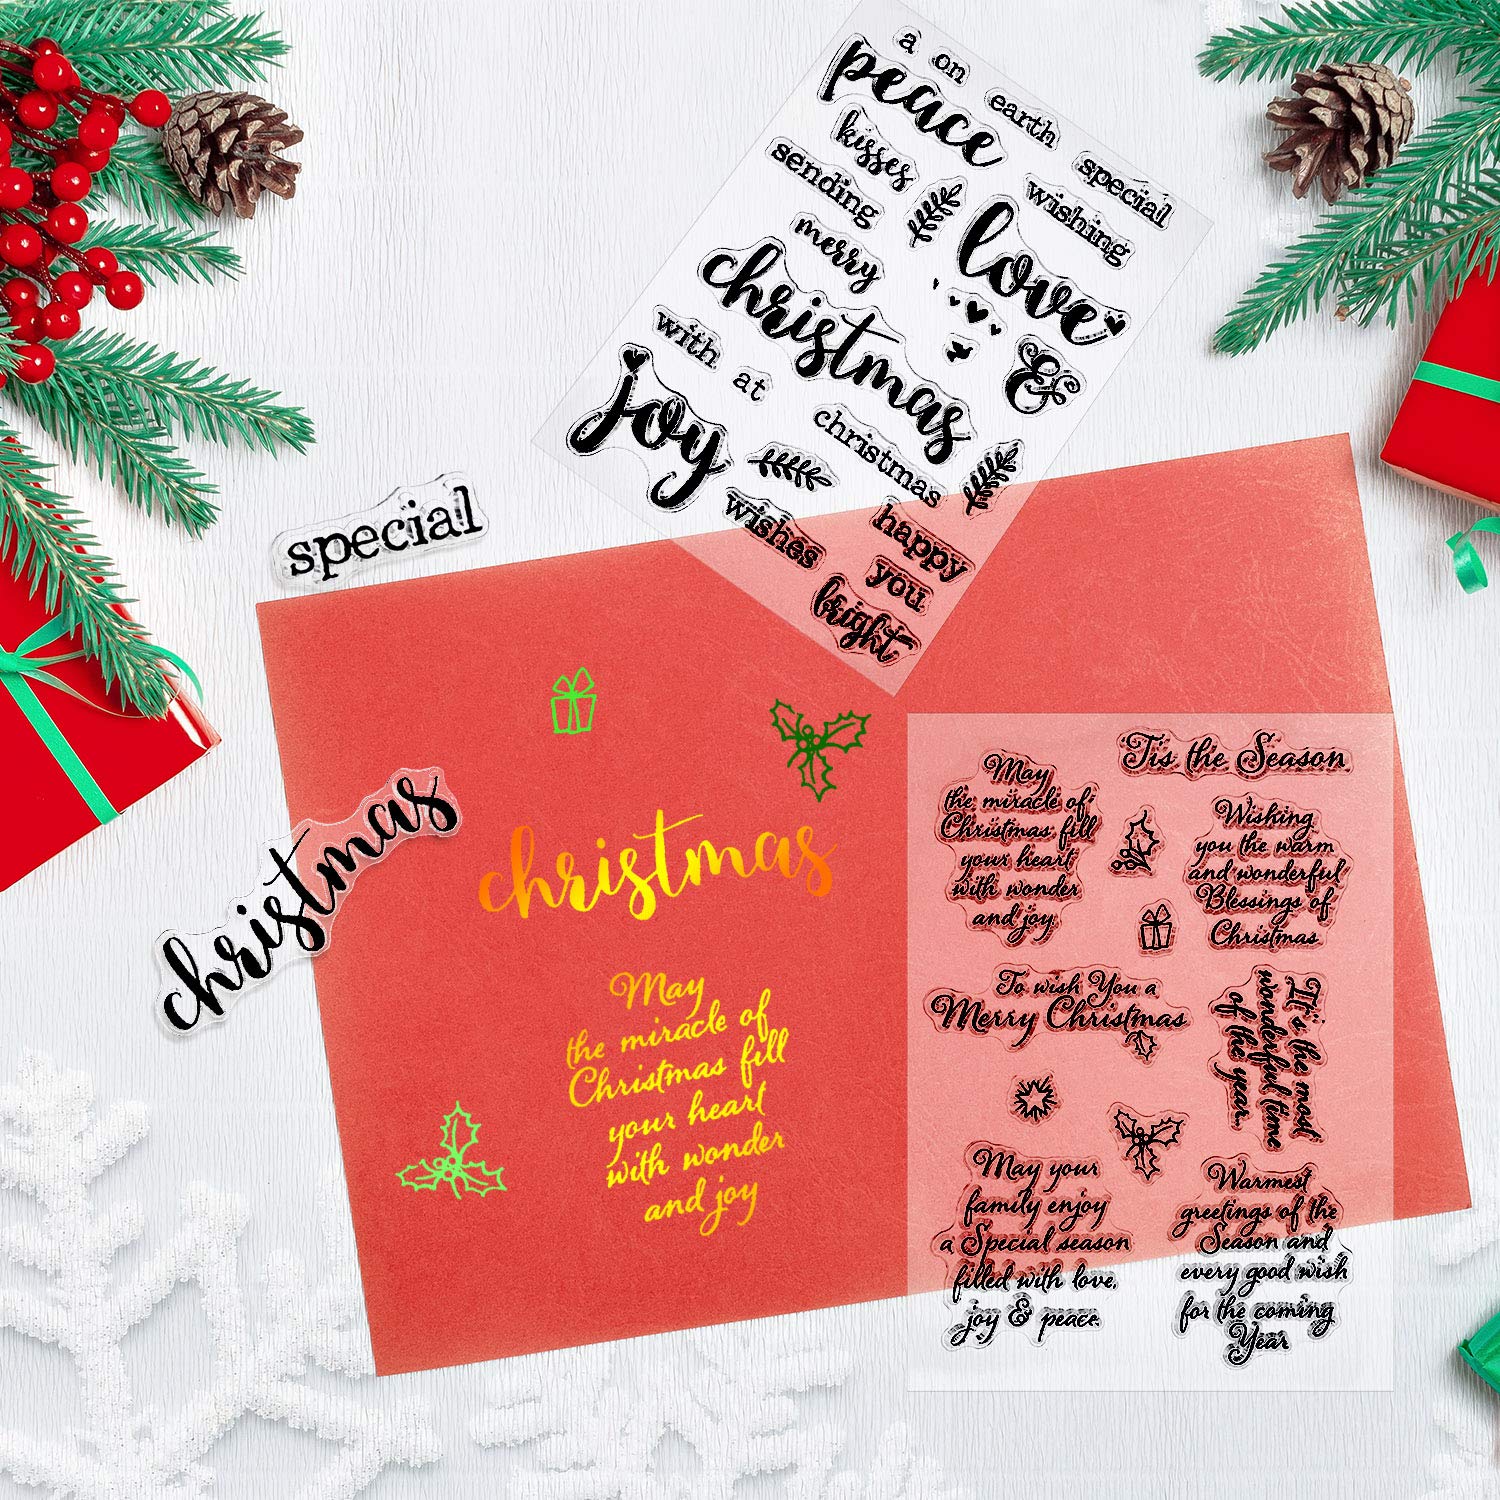 a
on
earth
special
peace
kisses
wishing
sending
merry
love
christmas
&
with
at
joy
christmas
wishes
happy
you
bright
special
christmas
christmas
May
the miracle of
Christmas fill
your heart
with wonder
and joy
'Tis the Season
May
the miracle of
Christmas fill
your heart
with wonder
and joy.
Wishing
you the warm
and wonderful
Blessings of
Christmas.
To wish You a
Merry Christmas.
It's the most
wonderful time
of the year.
May your
family enjoy
a Special season
filled with love,
joy & peace.
Warmest
greetings of the
Season and
every good wish
for the coming
Year